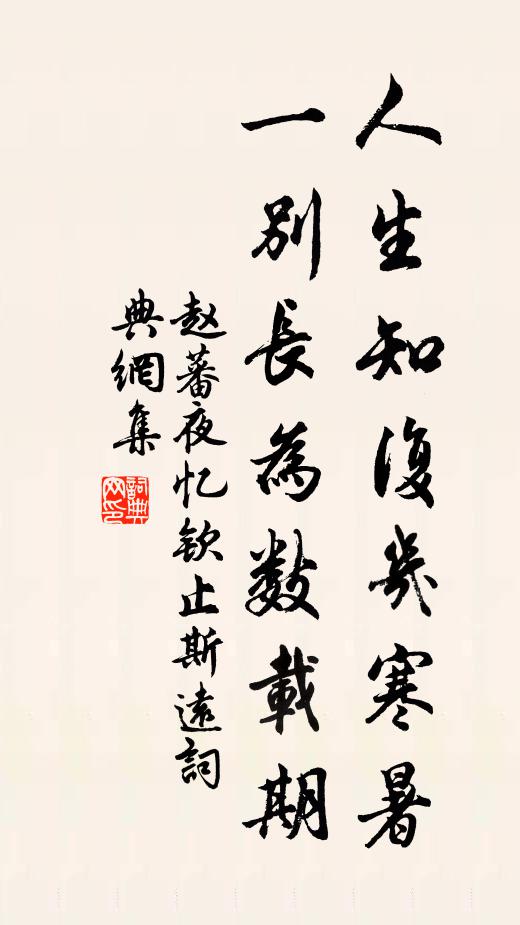 人生知復幾寒暑
一別長為數載期
赵蕃夜忆欽止斯遠詞
典網集
詞典
网印